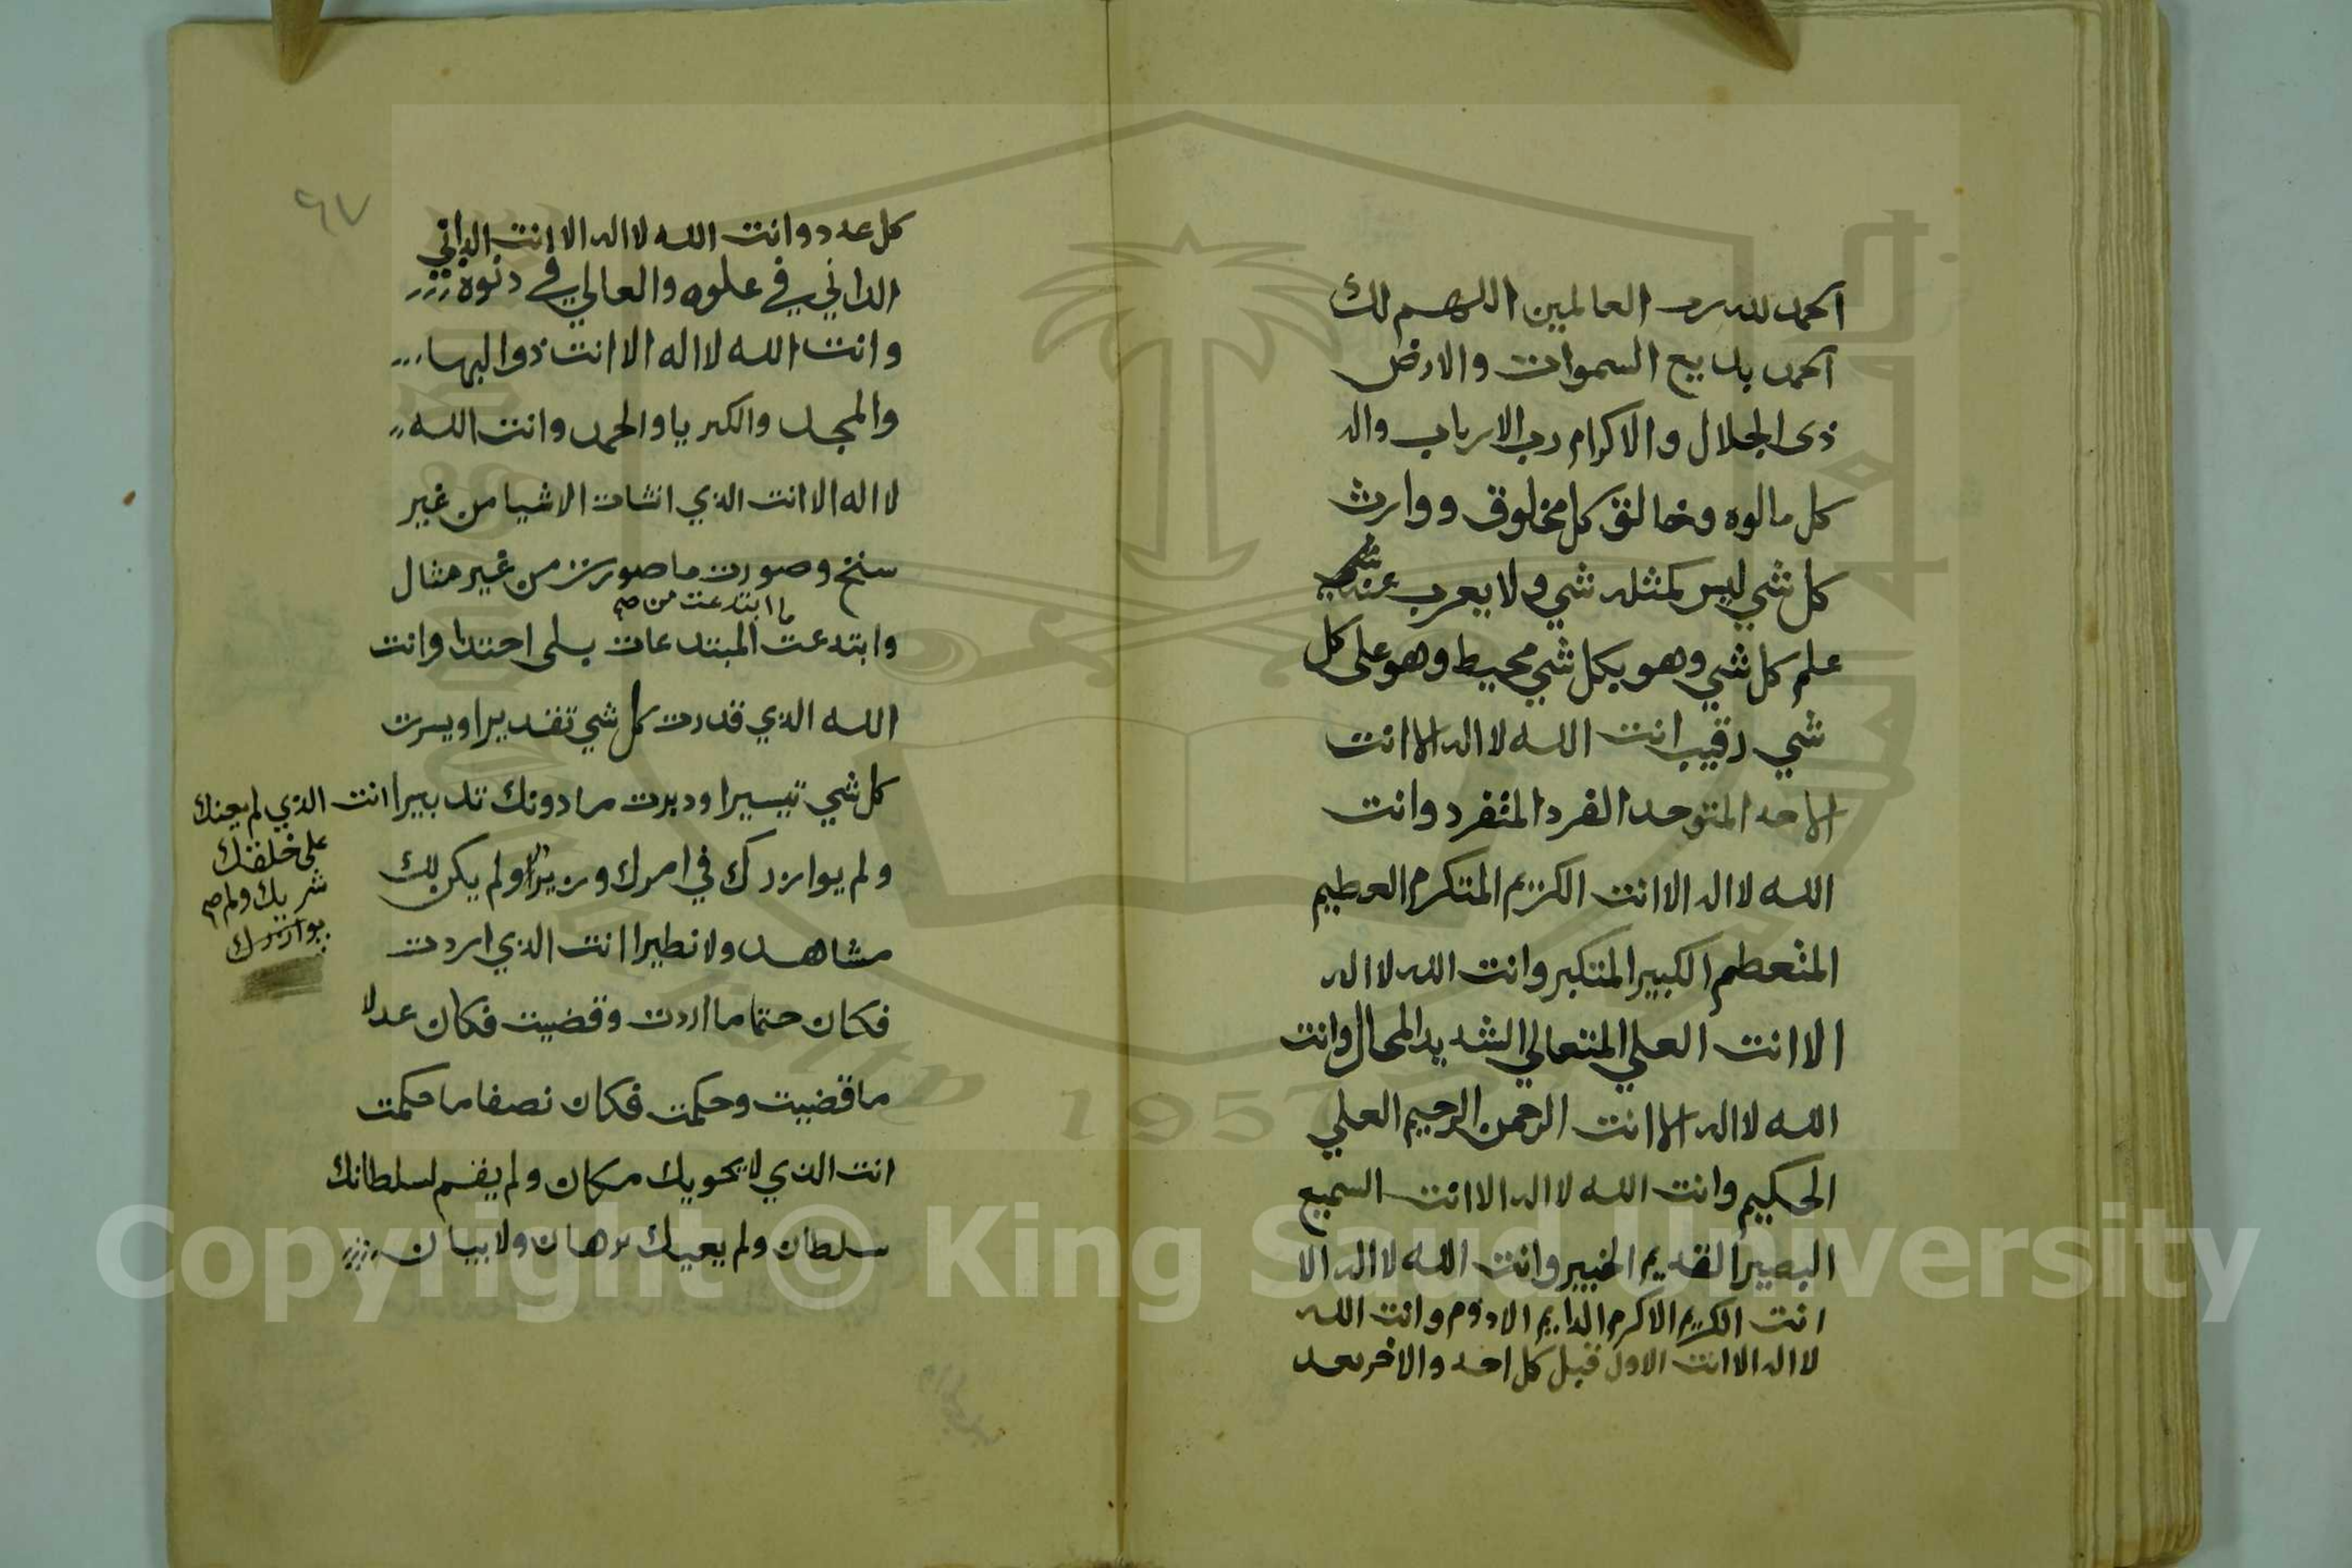 الحمد لله رب العالمين اللهم لك
الحمد بديع السموات والارض
ذى الجلال والاكرام رب الارباب واله
كل مالوه وخالق كل مخلوق ووارث
كل شي ليس كمثله شي ولا يعرب عنه
علم كل شي وهو بكل شي محيط وهو على كل
شي رقيب انت الله لا اله الا انت
الاحد المتوحد الفرد المتفرد وانت
الله لا اله الا انت الكريم المتكرم العطيم
المتعطم الكبير المتكبر وانت الله لا اله
الا انت العلي المتعالي الشديد المحال وانت
الله لا اله الا انت الرحمن الرحيم العلي
الحكيم وانت الله لا اله الا انت السميع
البصير القديم الخبير وانت الله لا اله الا
انت الكريم الاكرم الدايم الادوم وانت الله
لا اله الا انت الاول قبل كل احد والاخر بعد
٩٧
كل عدد وانت الله لا اله الا انت الداني
الداني في علوه والعالي في دنوه
وانت الله لا اله الا انت ذو البها
والمجد والكبريا والحمد وانت الله
لا اله الا انت الذي انشات الاشيا من غير
سنخ وصورت ما صورت من غير مثال
ما ابتدعت من صح
وابتدعت المبتدعات بلى احتدا وانت
الله الذي قدرت كل شي تقديرا ويسرت
كل شي تيسيرا ودبرت ما دونك تدبيرا انت الذي لم يعنك
على خلقك
شريك ولم صح
يوازرك
ولم يوازرك في امرك وزيرا ولم يكن لك
مشاهد ولا نطيرا انت الذي اردت
فكان حتما ما اردت وقضيت فكان عدلا
ما قضيت وحكمت فكان نصفا ما حكمت
انت الذي لا يحويك مكان ولم يقم لسلطانك
سلطان ولم يعيك برهان ولا بيان
Copyright © King Saud University
1957